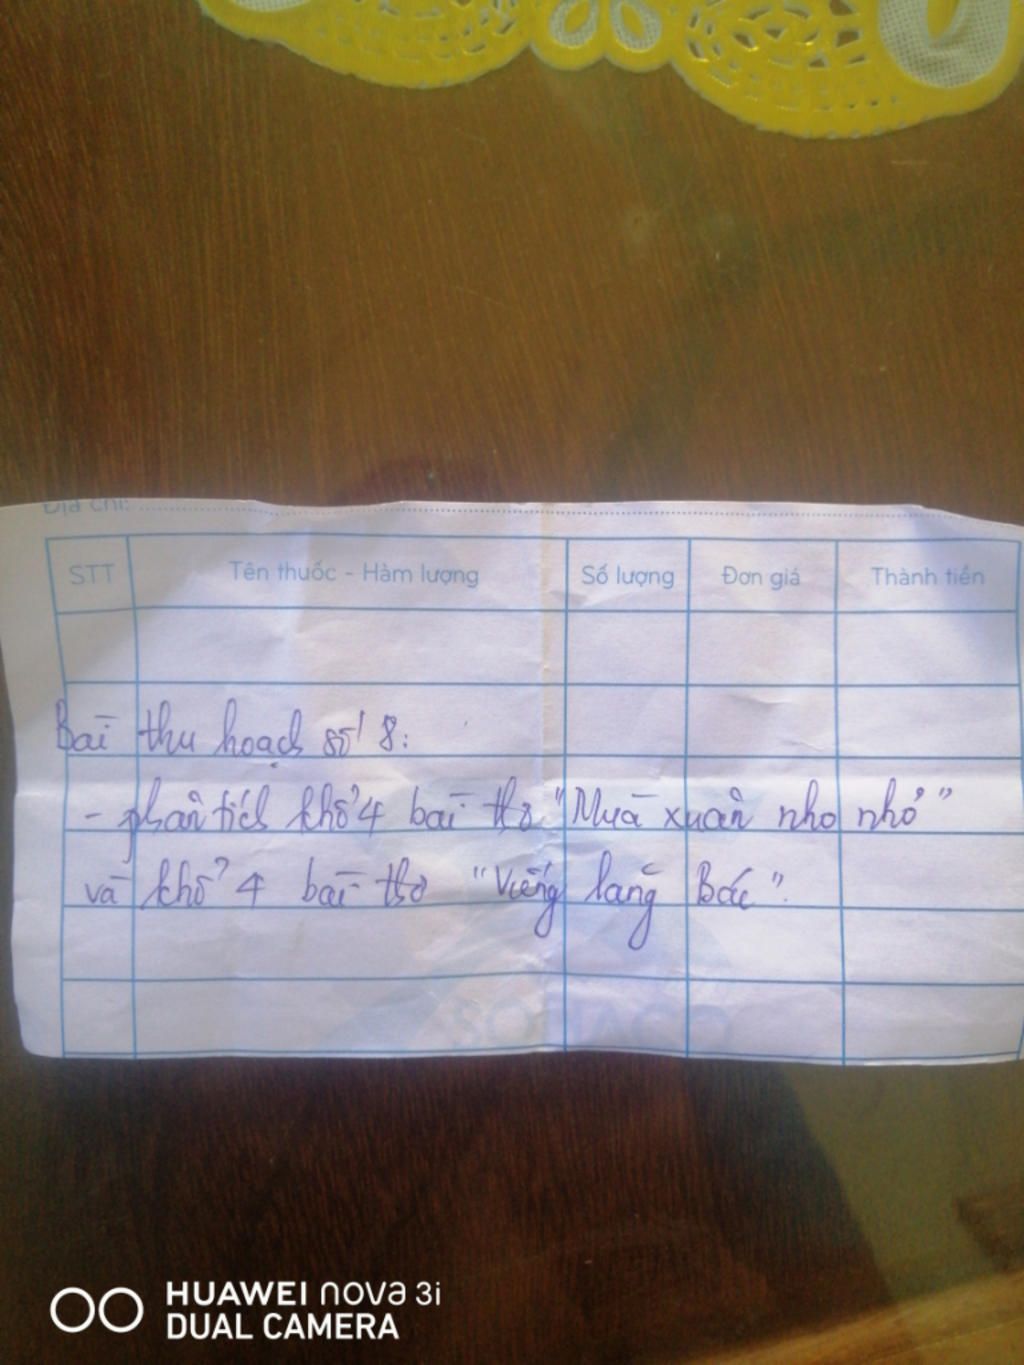 Địa chỉ:
STT Tên thuốc - Hàm lượng Số lượng Đơn giá Thành tiền
Bài thu hoạch số 8:
- phân tích khổ 4 bài thơ "Mùa xuân nho nhỏ"
và khổ 4 bài thơ "Viếng lăng Bác".
HUAWEI nova 3i
DUAL CAMERA